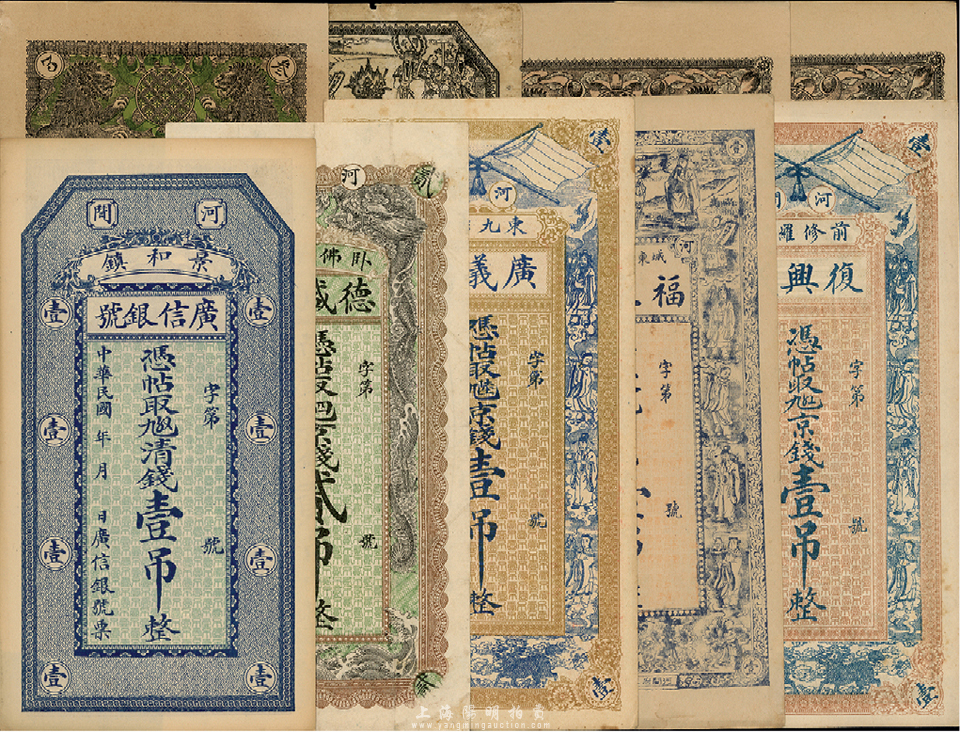 河間
景和鎮
廣信銀號
字第 號
憑帖取兌清錢壹吊整
中華民國 年 月 日廣信銀號票
壹 壹
壹 壹
壹 壹
壹 壹
河
卧佛
德
字第 號
憑帖取兌京錢貳吊整
壹
河
東九
廣義
字第 號
憑帖取兌京錢壹吊整
壹
河
城東
福
字第 號
壹
河間
前修羅
復興
字第 號
憑帖取兌京錢壹吊整
壹
上海陽明拍賣
www.yangmingauction.com